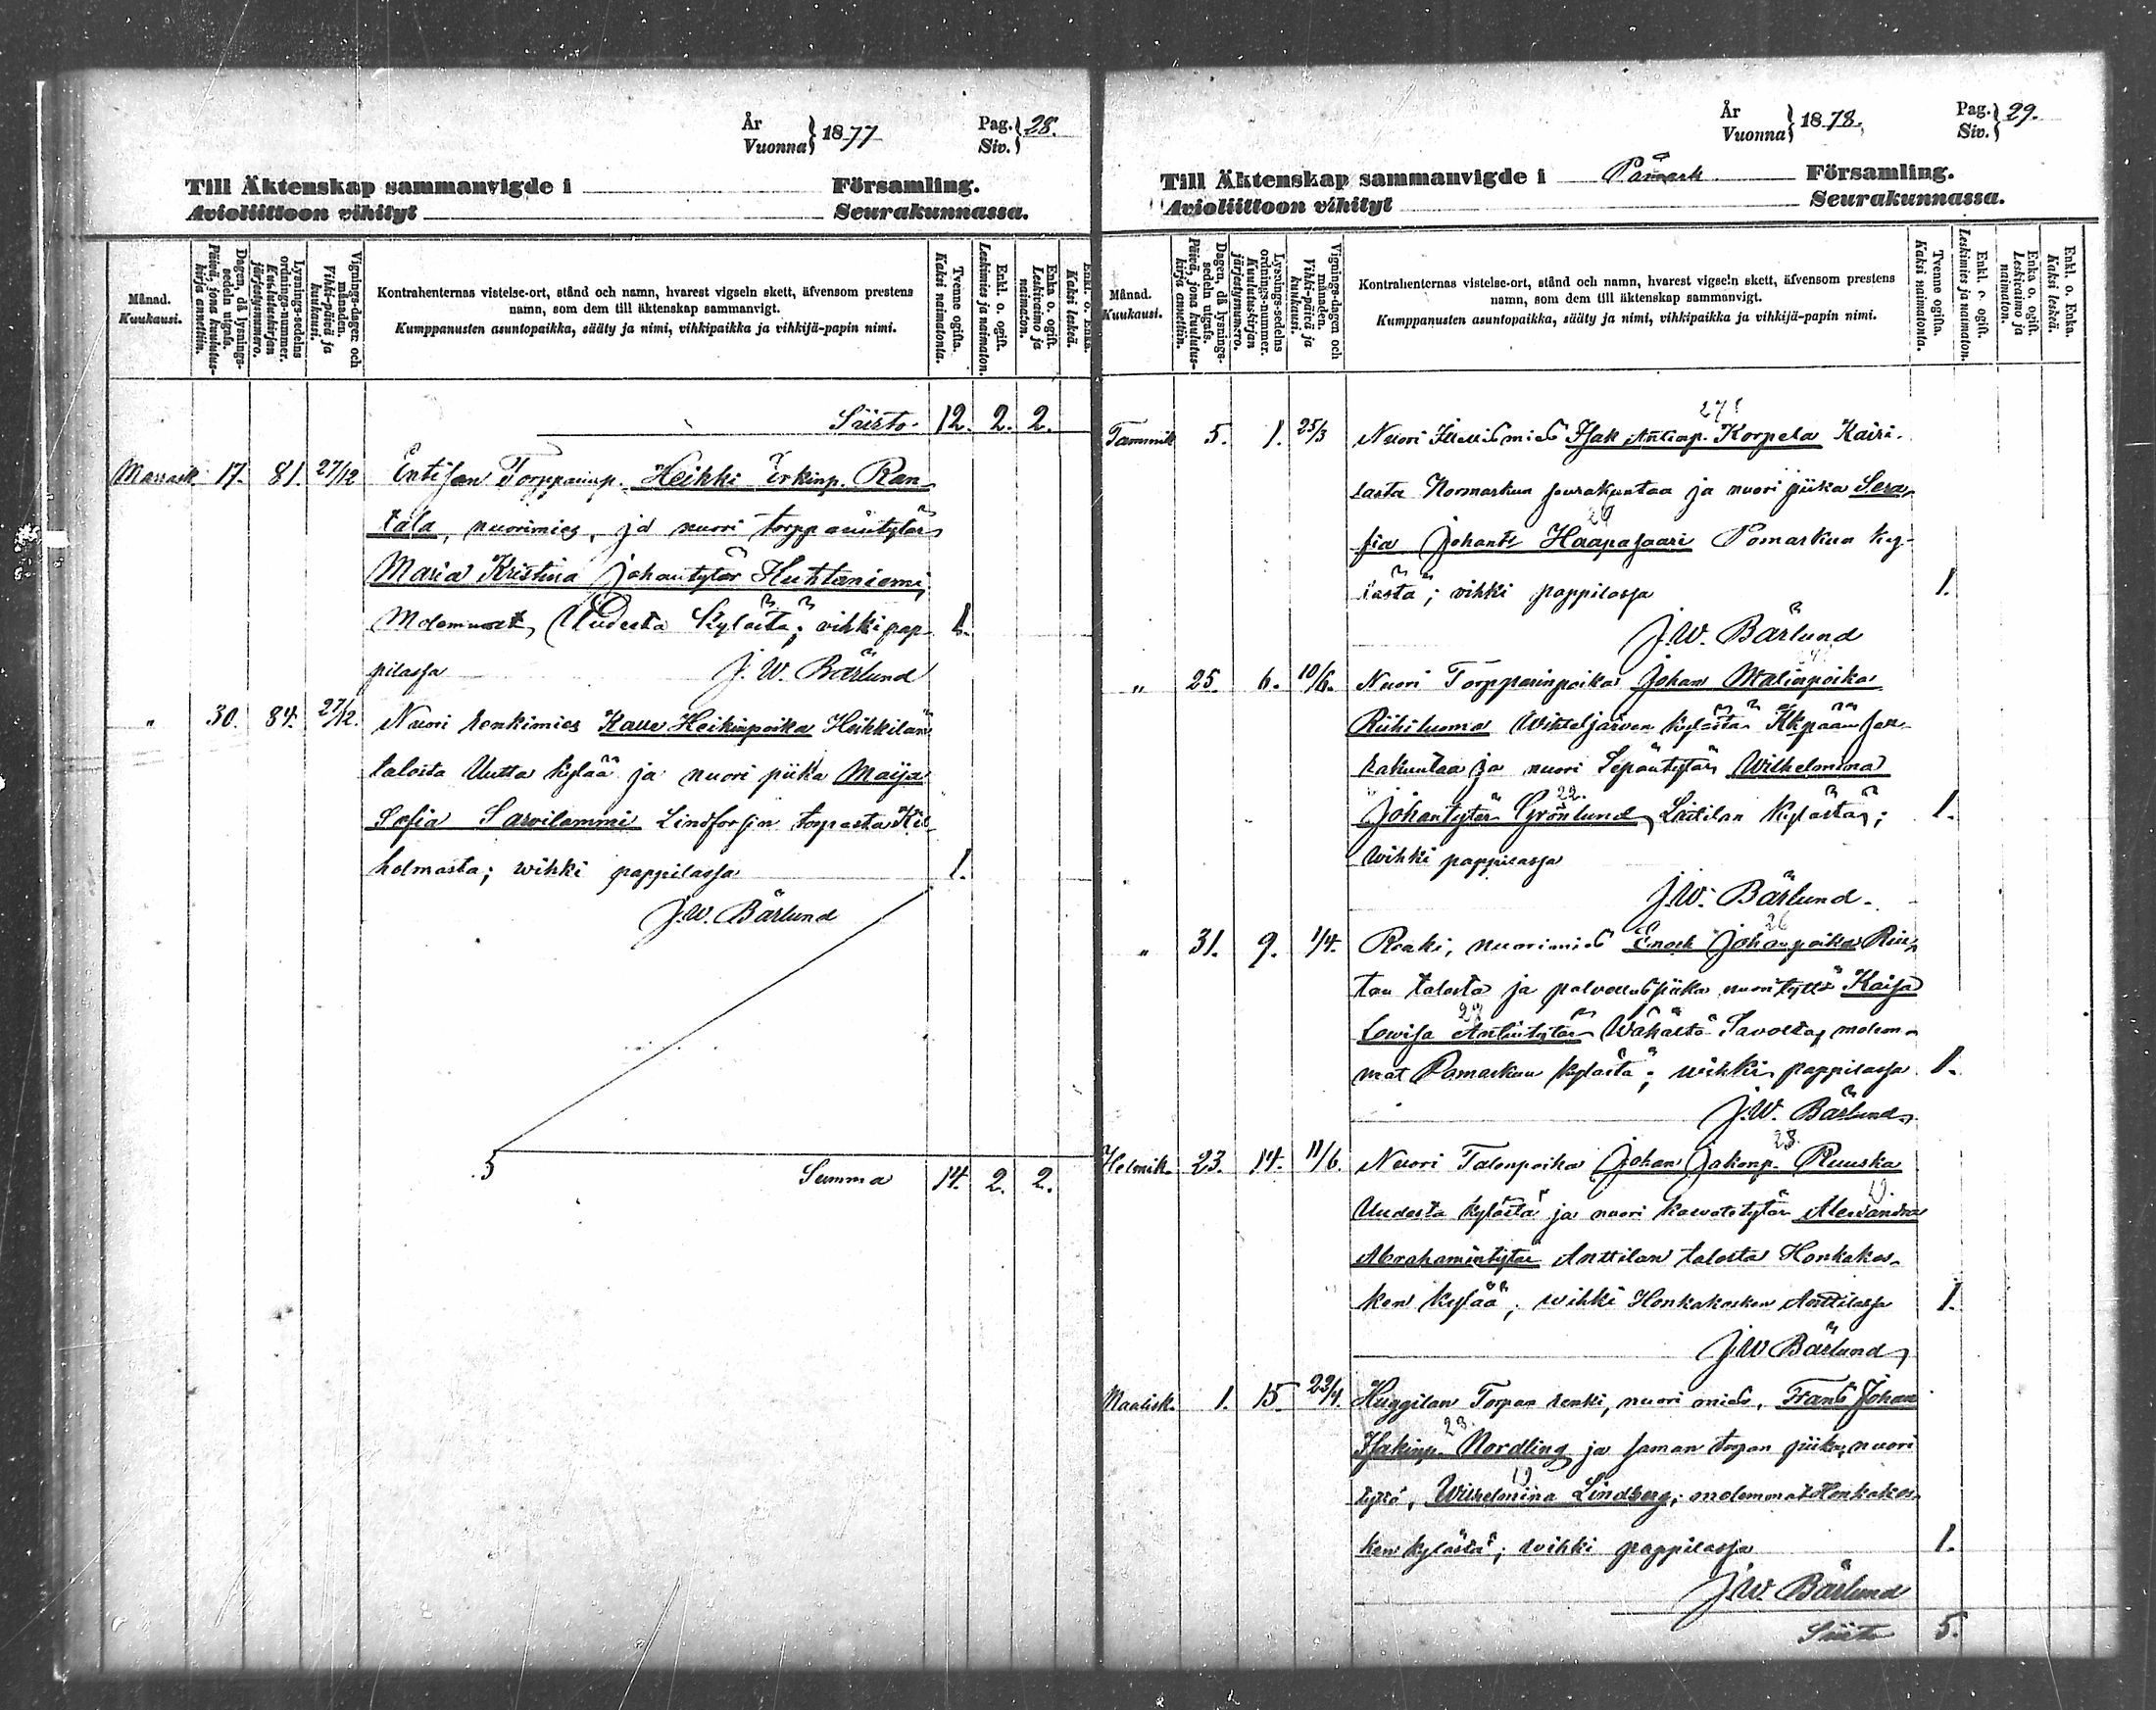 År
Vuonna } 1877
Pag.
Siv. } 28.
Till Äktenskap sammanvigde i Församling.
Avioliittoon vihityt Seurakunnassa.
Månad.
Kuukausi.
Dagen, då lysnings-
sedeln utgafs.
Päivä, jona kuulutus-
kirja annettiin.
Lysnings-sedelns
ordnings-nummer.
Kuulutuskirjan
järjestysnumero.
Vignings-dagen och
månaden.
Vihki-päivä ja
kuukausi.
Kontrahenternas vistelse-ort, stånd och namn, hvarest vigseln skett, äfvensom prestens
namn, som dem till äktenskap sammanvigt.
Kumppanusten asuntopaikka, sääty ja nimi, vihkipaikka ja vihkijä-papin nimi.
Tvenne ogifta.
Kaksi naimatonta.
Enkl. o. ogift.
Leskimies ja naimaton.
Enka o. ogift.
Leskivaimo ja
naimaton.
Enkl. o. Enka.
Kaksi leskeä.
Siirto 12. 2. 2.
Marrask. 17. 81. 27/12 Entisen Torpparinp. Heikki Erkinp. Ran-
tala, nuorimies, ja nuori torpparintytär
Maria Kristina Johantytär Huhtaniemi,
Molemmat Uudesta Kylästä; vihki pap- 1.
pilassa J. W. Bärlund
" 30. 84. 27/12. Nuori renkimies Kalle Heikinpoika Heikkilän
talosta Uutta kylää ja nuori piika Maija
Sofia Sarvilammi Lindforsin torpasta Kil-
holmasta; wihki pappilassa 1.
J. W. Bärlund
Summa 14. 2. 2.
År
Vuonna } 1878.
Pag.
Siv. } 29.
Till Äktenskap sammanvigde i Påmark Församling.
Avioliittoon vihityt Seurakunnassa.
Månad.
Kuukausi.
Dagen, då lysnings-
sedeln utgafs.
Päivä, jona kuulutus-
kirja annettiin.
Lysnings-sedelns
ordnings-nummer.
Kuulutuskirjan
järjestysnumero.
Vignings-dagen och
månaden.
Vihki-päivä ja
kuukausi.
Kontrahenternas vistelse-ort, stånd och namn, hvarest vigseln skett, äfvensom prestens
namn, som dem till äktenskap sammanvigt.
Kumppanusten asuntopaikka, sääty ja nimi, vihkipaikka ja vihkijä-papin nimi.
Tvenne ogifta.
Kaksi naimatonta.
Enkl. o. ogift.
Leskimies ja naimaton.
Enka o. ogift.
Leskivaimo ja
naimaton.
Enkl. o. Enka.
Kaksi leskeä.
27
Tammik. 5. 1. 25/3 Nuori Itsellismies Isak Antinp. Korpela Kairi-
lasta Normarkun seurakuntaa ja nuori piika Sera-
26
fia Johant. Haapasaari Pomarkun ky-
lästä; vihki pappilassa 1.
J. W. Bärlund
" 25. 6. 10/6. Nuori Torpparinpoika Johan Matinpoika
Riihiluoma Wihteljärven kylästä Kkpään seu-
rakuntaa ja nuori Sepäntytär Wilhelmina
22.
Johantytär Grönlund Laitilan Kylästä; 1.
Wihki pappilassa
J. W. Bärlund.
26
" 31. 9. 1/4. Renki, nuorimies Enok Johanpoika
talosta ja palveluspiika nuori tyttö Kaisa
27
Lowisa Antintytär Wähästä Savosta, molem-
mat Pomarkun kylästä; wihki pappilassa 1.
J. W. Bärlund
23.
Helmik. 23. 14. 11/6. Nuori Talonpoika Johan Jakonp. Ruuska
19.
Uudesta kylästä ja nuori kasvatetytär Alexandra
Abrahamintytär Anttilan talosta Honkakos-
ken kylää; wihki Honkakosken Anttilassa 1.
J. W. Bärlund
Maalisk. 1. 15. 22/4. Huggilan Torpan renki, nuori mies, Frans Johan
23.
Isakinp. Nordling ja saman torpan piika, nuori
19
tyttö, Wilhelmina Lindberg; molemmat Honkakos-
ken kylästä; wihki pappilassa 1.
J. W. Bärlund
Siirto 5.